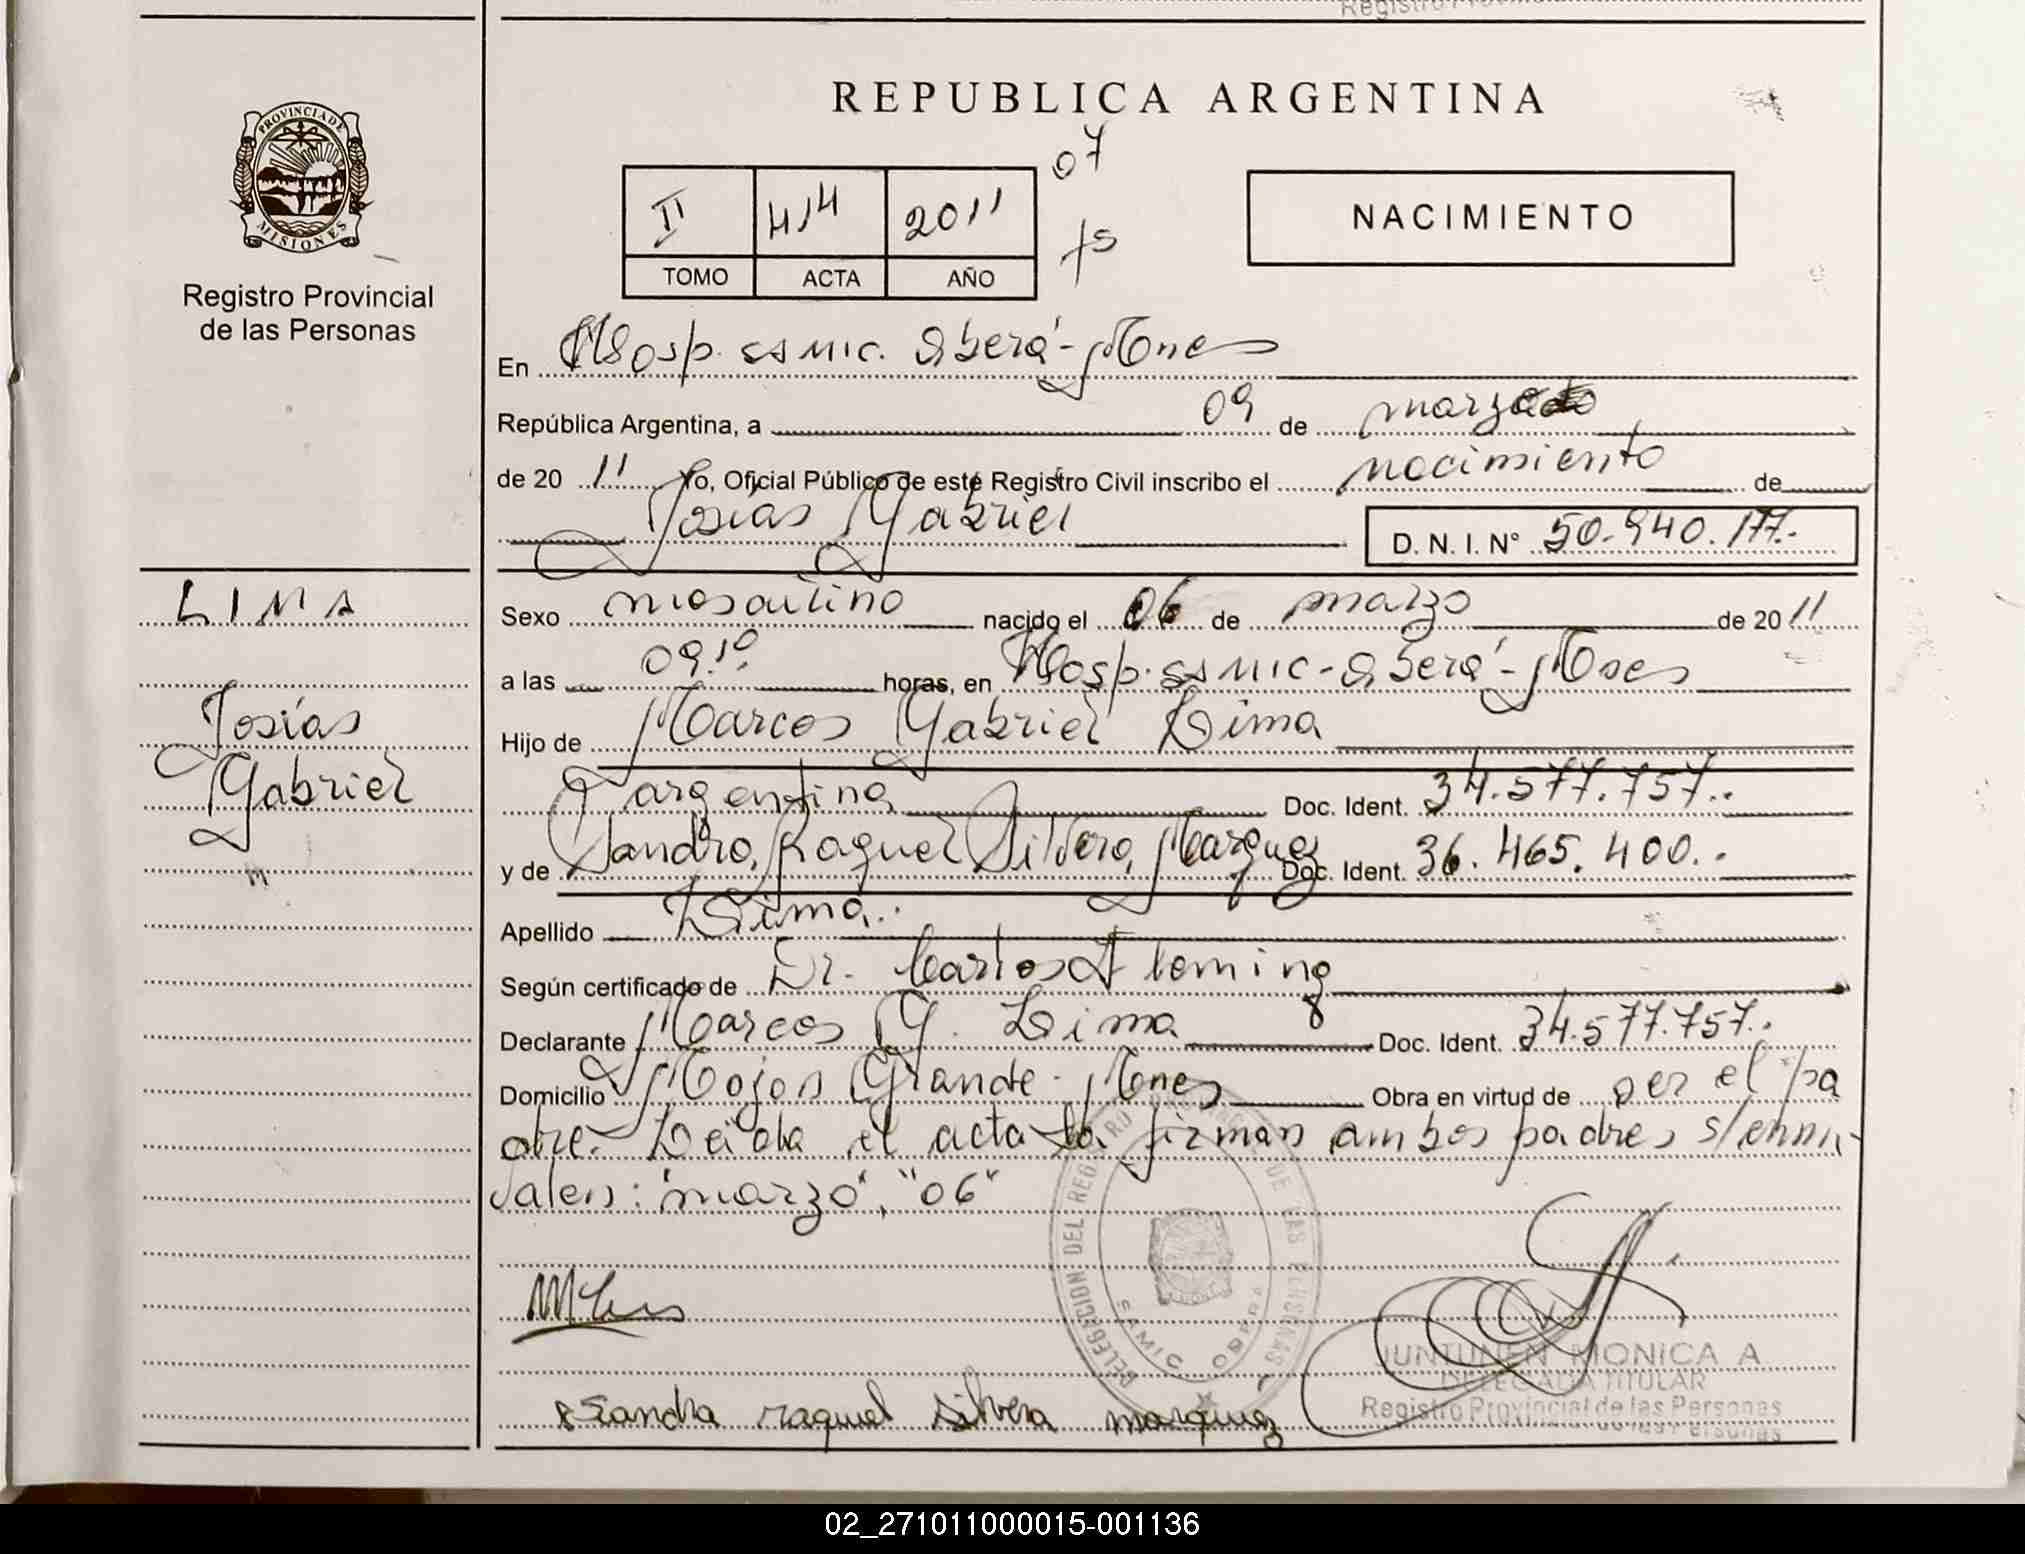 Registro Provincial
REPUBLICA ARGENTINA
PROVINCIA DE
MISIONES
Registro Provincial
de las Personas
II 414 2011 07
TOMO ACTA AÑO
NACIMIENTO
En Hosp. SAMIC. Oberá - Mnes
República Argentina, a 09 de marzo
de 20 11 Yo, Oficial Público de este Registro Civil inscribo el nacimiento de
Josías Gabriel D. N. I. N° 50.940.177.-
LIMA
Josías
Gabriel
Sexo masculino nacido el 06 de marzo de 20 11
a las 09.10 horas, en Hosp. SAMIC - Oberá - Mnes
Hijo de Marcos Gabriel Lima
argentina Doc. Ident. 34.577.757..
y de Sandra Raquel Silvera Marquez Doc. Ident. 36.465.400..
Apellido Lima..
Según certificado de Dr. Carlos Fleming
Declarante Marcos G. Lima Doc. Ident. 34.577.757..
Domicilio Mojon Grande - Mnes Obra en virtud de ser el pa
dre. Leida el acta la firman ambos padres s/enm.
Valen: "marzo", "06"
DELEGACION DEL REGISTRO PROVINCIAL DE LAS PERSONAS
SAMIC OBERA
JUNTUNEN MONICA A
DELEGADA TITULAR
Registro Provincial de las Personas
Sandra raquel silvera marquez
02_271011000015-001136